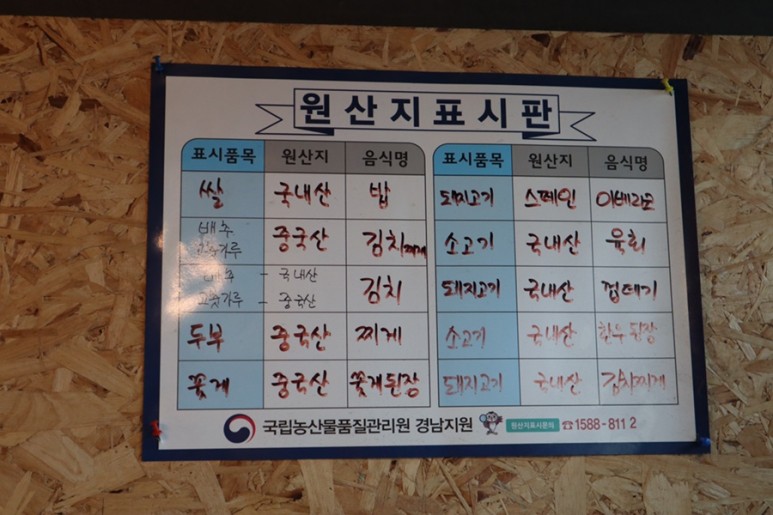 원산지표시판
표시품목 원산지 음식명
쌀 국내산 밥
배추 고춧가루 중국산 김치찌개
배추 - 국내산 김치
고춧가루 - 중국산
두부 중국산 찌게
꽃게 중국산 꽃게된장
표시품목 원산지 음식명
돼지고기 스페인 이베리코
소고기 국내산 육회
돼지고기 국내산 껍데기
소고기 국내산 한우된장
돼지고기 국내산 김치찌개
국립농산물품질관리원 경남지원 원산지표시문의 ☎1588-8112